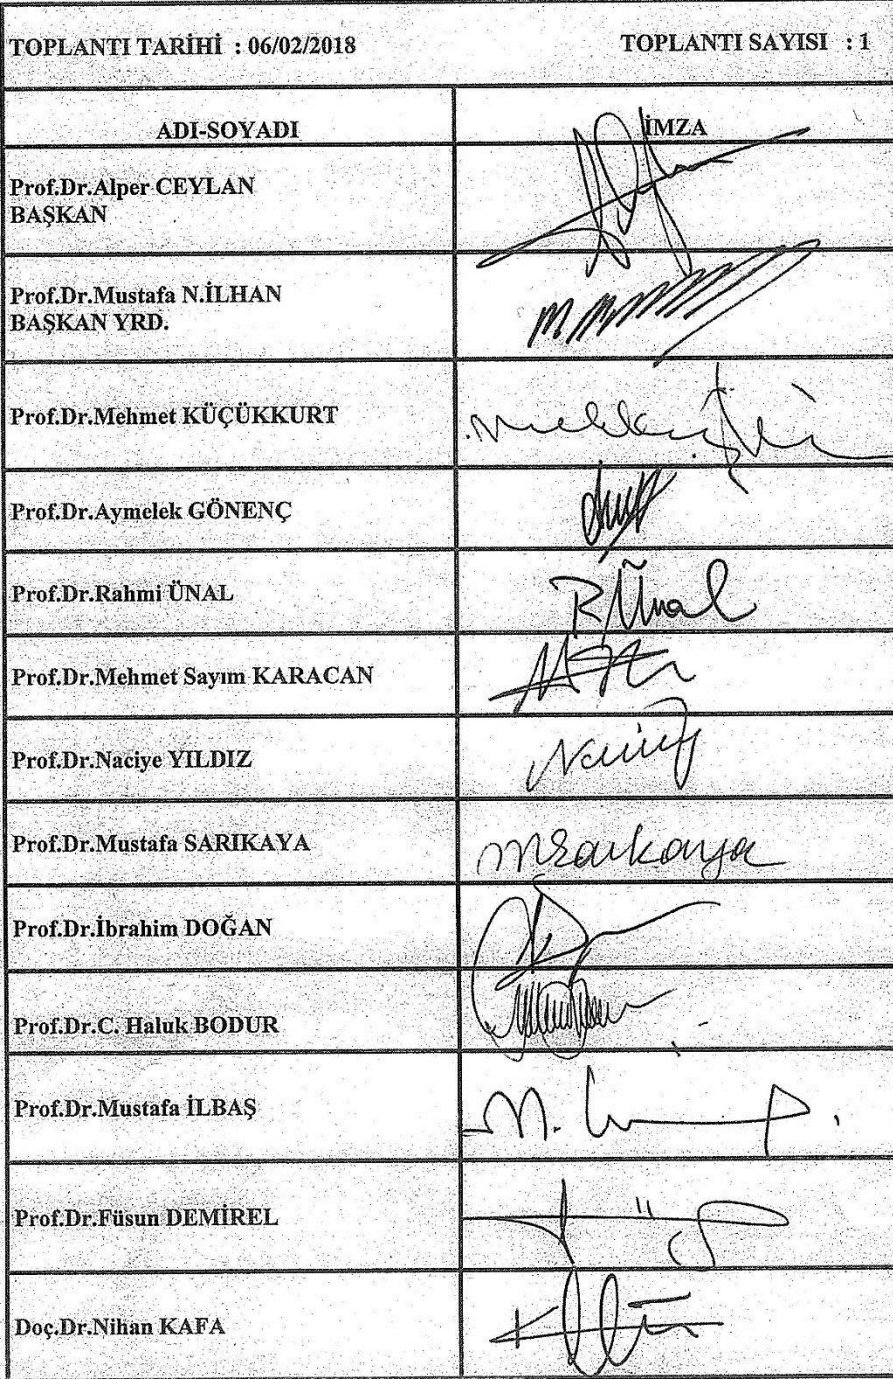 TOPLANTI TARİHİ : 06/02/2018 TOPLANTI SAYISI : 1
ADI-SOYADI İMZA
Prof.Dr.Alper CEYLAN
BAŞKAN
Prof.Dr.Mustafa N.İLHAN
BAŞKAN YRD.
Prof.Dr.Mehmet KÜÇÜKKURT
Prof.Dr.Aymelek GÖNENÇ
Prof.Dr.Rahmi ÜNAL R Ünal
Prof.Dr.Mehmet Sayım KARACAN
Prof.Dr.Naciye YILDIZ
Prof.Dr.Mustafa SARIKAYA mSarıkaya
Prof.Dr.İbrahim DOĞAN
Prof.Dr.C. Haluk BODUR
Prof.Dr.Mustafa İLBAŞ
Prof.Dr.Füsun DEMİREL
Doç.Dr.Nihan KAFA